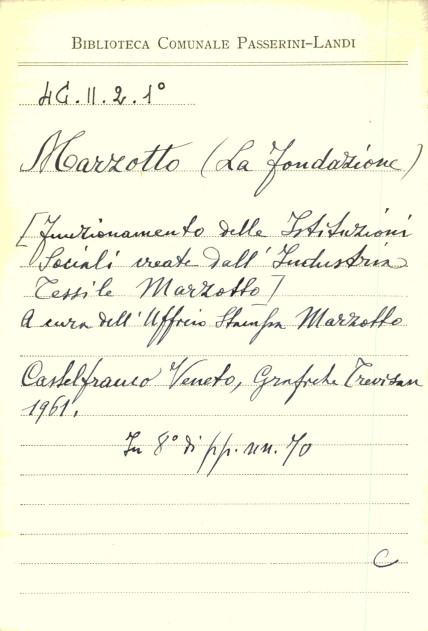 BIBLIOTECA COMUNALE PASSERINI-LANDI
4G.II.2.1°
Marzotto (La Fondazione)
[Funzionamento delle Istituzioni
Sociali create dall'Industria
Tessile Marzotto]
A cura dell'Ufficio Stampa Marzotto
Castelfranco Veneto, Grafiche Trevisan
1961.
In 8° di pp. nn. 70
C